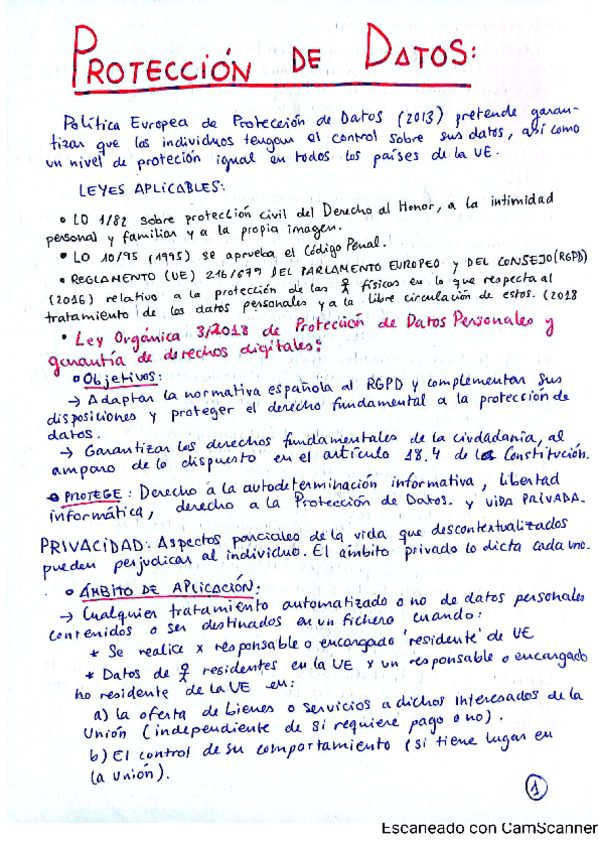 PROTECCIÓN DE DATOS:
Política Europea de Protección de Datos (2013) pretende garan-
tizar que los individuos tengan el control sobre sus datos, así como
un nivel de proteción igual en todos los países de la UE.
LEYES APLICABLES:
• LO 1/82 sobre protección civil del Derecho al Honor, a la intimidad
personal y familiar y a la propia imagen.
• LO 10/95 (1995) se aprueba el Código Penal.
• REGLAMENTO (UE) 216/679 DEL PARLAMENTO EUROPEO y DEL CONSEJO (RGPD)
(2016) relativo a la protección de las físicas en lo que respecta al
tratamiento de los datos personales y a la libre circulación de estos. (2018
• Ley Orgánica 3/2018 de Protección de Datos Personales y
garantía de derechos digitales:
Objetivos:
→ Adaptar la normativa española al RGPD y complementar sus
disposiciones y proteger el derecho fundamental a la protección de
datos.
→ Garantizar los derechos fundamentales de la ciudadanía, al
amparo de lo dispuesto en el artículo 18.4 de la Constitución.
PROTEGE: Derecho a la autodeterminación informativa, libertad
informática, derecho a la Protección de Datos. y VIDA PRIVADA.
PRIVACIDAD: Aspectos parciales de la vida que descontextualizados
pueden perjudicar al individuo. El ámbito privado lo dicta cada uno.
ÁMBITO DE APLICACIÓN:
→ Cualquier tratamiento automatizado o no de datos personales
contenidos o ser destinados en un fichero cuando:
* Se realice x responsable o encargado 'residente' de UE
* Datos de residentes en la UE x un responsable o encargado
no residente de la UE en:
a) la oferta de bienes o servicios a dichos interesados de la
Unión (independiente de si requiere pago o no).
b) El control de su comportamiento (si tiene lugar en
la Unión).
1
Escaneado con CamScanner